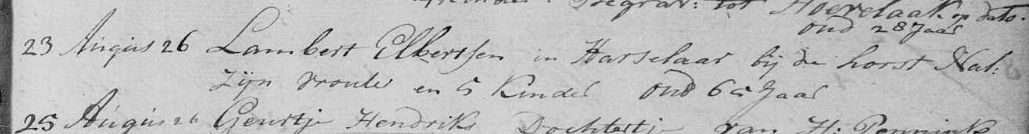 Begrav: tot Hoevelaak op dato
oud 28 Jaar
23 Augus 26 Lambert Elbertsen in Harselaar bij de horst Nal:
zijn vrouw en 5 Kinder oud 65 Jaar
25 Augus 26 Geurtje Hendriks Dochtertje van H: Pennink